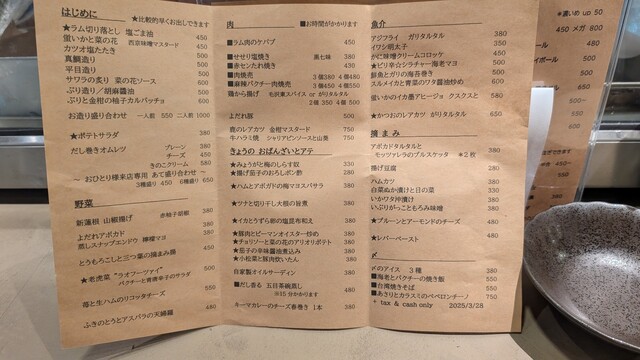 はじめに ★比較的早くお出しできます
★ラム切り落とし 塩ごま油 450
蛍いかと菜の花 西京味噌マスタード 450
カツオ塩たたき
真鯛造り 500
平目造り 500
サワラの炙り 菜の花ソース 600
ぶり造り/胡麻醤油 500
ぶりと金柑の柚子カルパッチョ 600
お造り盛り合わせ 一人前 550 二人前 1000
★ポテトサラダ 380
だし巻きオムレツ プレーン 380
チーズ 450
きのこクリーム 580
～ おひとり様来店専用 あて盛り合わせ ～
3種盛り 450 6種盛り 650
野菜
新蓮根 山椒揚げ 赤柚子胡椒 380
よだれアボカド 380
蒸しスナップエンドウ 檸檬マヨ 380
とうもろこしと三つ葉の摘まみ揚 450
★老虎菜 "ラオフーツァイ" 500
パクチーと青唐辛子のサラダ
筍と生ハムのリコッタチーズ 550
ふきのとうとアスパラの天婦羅 480
肉 ■お時間がかかります
■ラム肉のケバブ 450
■せせり塩焼き 黒七味 380
■赤センたれ焼き 430
■肉焼売 3個380 4個480
■麻辣パクチー肉焼売 3個450 4個550
鶏から揚げ 七沢東スパイス or ガリタルタル
2個 350 4個 500
よだれ豚 500
鹿のレアカツ 金柑マスタード 750
牛ハラミ焼 シャリアピンソースと山葵 750
きょうの おばんざいとアテ
★みょうがと梅のしらす奴 330
★揚げ茄子のおろしポン酢 280
★ハムとアボガドの梅マヨスパサラ 380
★ツナと切り干し大根の旨煮 380
★イカとうずら卵の塩昆布和え 380
★豚肉とピーマンオイスター炒め 380
★チョリソーと菜の花のアリオリポテト 380
★茄子の辛味醤油煮込み 380
★小松菜と豚肉炊いたん 380
自家製オイルサーディン 380
■だし香る 五目茶碗蒸し 480
※15分かかります
キーマカレーのチーズ春巻き 1本 380
魚介
アジフライ ガリタルタル 380
イワシ明太子 350
かに味噌クリームコロッケ 450
★ピリ辛☆シラチャー海老マヨ 500
鮮魚とガリの海苔巻き 500
スルメイカと青菜のワタ醤油炒め 600
蛍いかのイカ墨アヒージョ クスクスと 580
★かつおのレアカツ ガリタルタル 680
摘まみ
アボカドタルタルと
モッツァレラのブルスケッタ ＊2枚 380
揚げ豆腐 280
ハムカツ 380
白菜ぬか漬けと日の菜 330
いかワタ沖漬け 380
いぶりがっこともろみ味噌 380
★プルーンとアーモンドのチーズ 480
★レバーペースト 480
〆
〆のアイス 3種 380
■海老とパクチーの焼き飯 550
■台湾焼きそば 550
■あさりとカラスミのペペロンチーノ 750
+ tax & cash only 2025/3/28
★濃いめ up 50
450 メガ 800